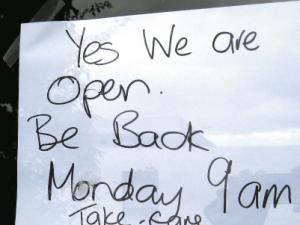 Yes We are
Open.
Be Back
Monday 9am
Take care